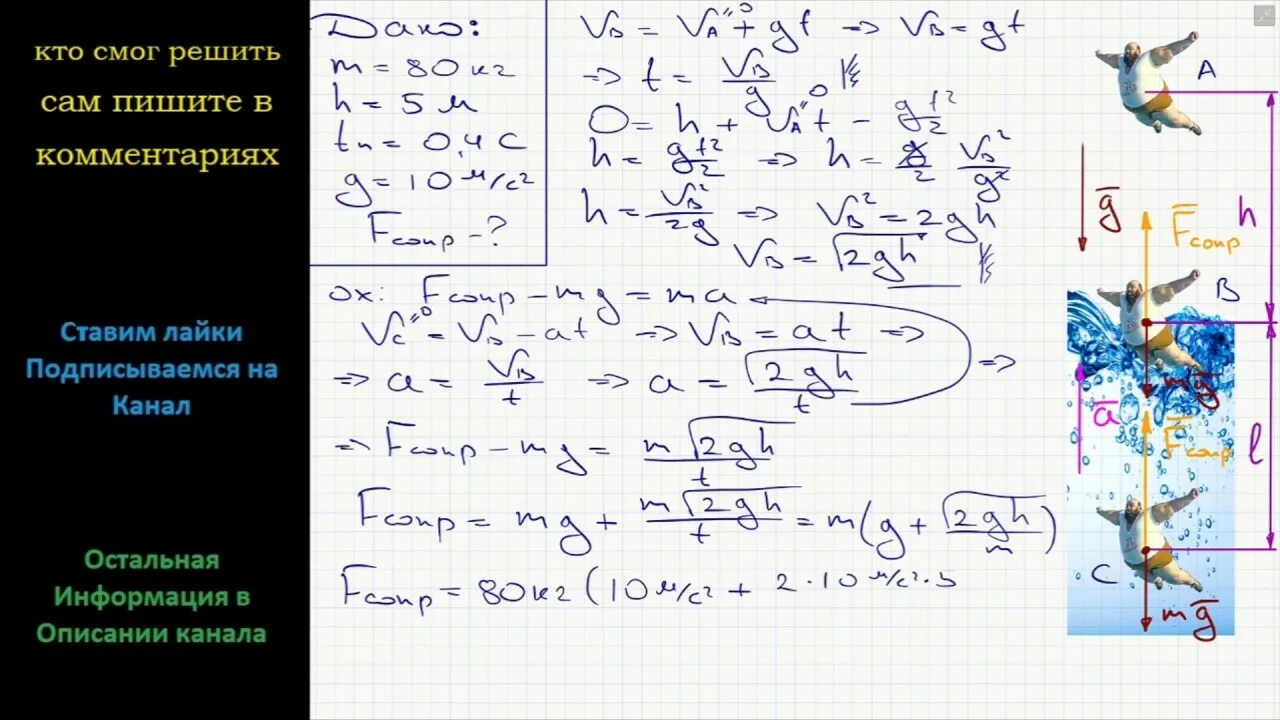 кто смог решить
сам пишите в
комментариях
Ставим лайки
Подписываемся на
Канал
Остальная
Информация в
Описании канала
Дано:
m = 80 кг
h = 5 м
tп = 0,4 с
g = 10 м/с²
Fсопр - ?
VB = VA"⁰ + gt => VB = gt
=> t = VB/g
0 = h + VA"⁰t - gt²/2
h = gt²/2 => h = g/2 VB²/g²
h = VB²/2g => VB² = 2gh
VB = √2gh
ох: Fсопр - mg = ma
VC"⁰ = VB - at => VB = at =>
=> a = VB/t => a = √2gh/t =>
=> Fсопр - mg = m√2gh/t
Fсопр = mg + m√2gh/t = m(g + √2gh/m)
Fсопр = 80кг (10 м/с² + 2·10 м/с²·5
A
g
h
Fсопр
B
mg
a
Fсопр
l
C
mg